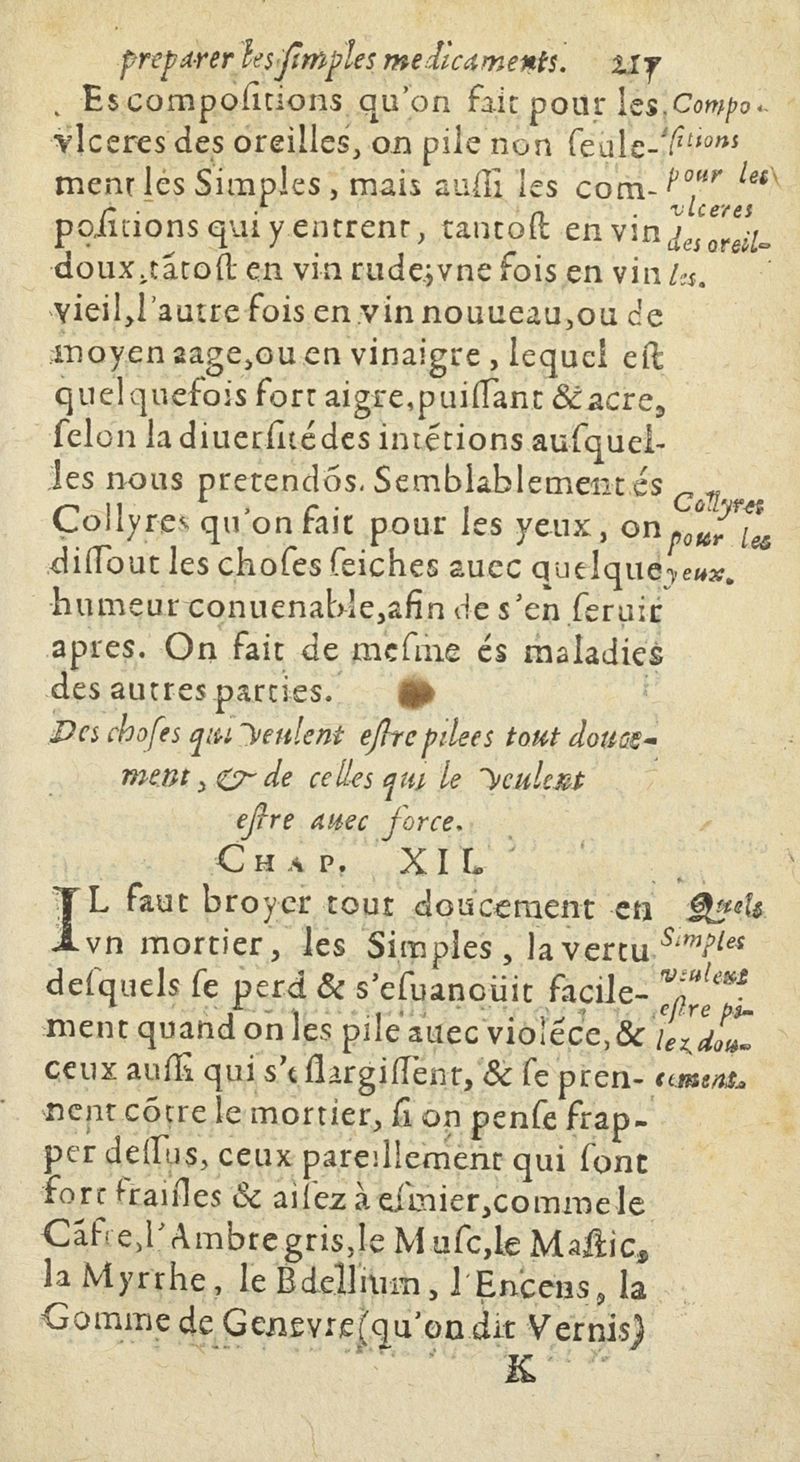 preparer les ſimples medicaments. 217
Es compoſitions qu'on fait pour les
vlceres des oreilles, on pile non ſeule-
ment les Simples, mais auſſi les com-
poſitions qui y entrent, tantoſt en vin
doux, tãtoſt en vin rude; vne fois en vin
vieil, l'autre fois en vin nouueau, ou de
moyen aage, ou en vinaigre, lequel eſt
quelquefois fort aigre, puiſſant & acre,
ſelon la diuerſité des intẽtions auſquel-
les nous pretendõs. Semblablement és
Collyres qu'on fait pour les yeux, on
diſſout les choſes ſeiches auec quelque
humeur conuenable, afin de s'en ſeruir
apres. On fait de meſme és maladies
des autres parties.
Compo-
ſitions
pour les
vlceres
des oreil-
les.
Collyres
pour les
yeux.
Des choſes qui veulent eſtre pilees tout douce-
ment, & de celles qui le veulent
eſtre auec force.
CHAP. XII.
IL faut broyer tout doucement en
vn mortier, les Simples, la vertu
deſquels ſe perd & s'eſuanoüit facile-
ment quand on les pile auec violẽce, &
ceux auſſi qui s'eſlargiſſent, & ſe pren-
nent cõtre le mortier, ſi on penſe frap-
per deſſus, ceux pareillement qui ſont
fort fraiſles & aiſez à eſmier, comme le
Cãfre, l'Ambre gris, le Muſc, le Maſtic,
la Myrrhe, le Bdellium, l'Encens, la
Gomme de Genevre (qu'on dit Vernis)
Quels
Simples
veulent
eſtre pi-
lez dou-
cement.
K